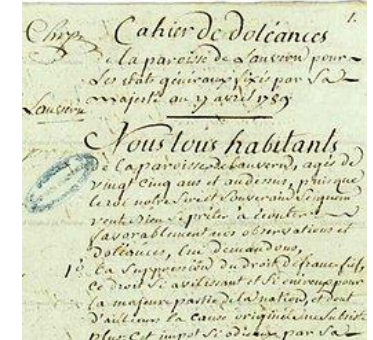 1.
Chryp Cahier de doléances
de la paroisse de Lauvern pour
Les états généraux fixés par Sa
majesté au 27 avril 1789
Lauvern
Nous tous habitants
de la paroisse de Lauvern, agés de
vingt cinq ans et audessus, puisque
le roi notre Sire et Souverain Seigneur
veut bien se prêter à écouter
favorablement nos observations et
doléances, lui demandons,
1º La suppression du droit de franc fief,
ce droit si avilissant et si onéreux pour
la majeure partie de la nation, et dont
d'ailleurs la cause originelle ne subsiste
plus. Cet impot si odieux par sa